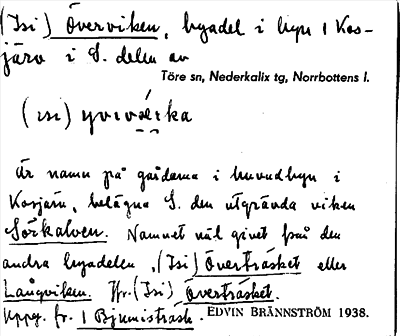 (Isi) Överviken, byadel i byn i Kos-
järv i S. delen av
Töre sn, Nederkalix tg, Norrbottens l.
(isi) yvərvı̆ka
Är namn på gårdarna i huvudbyn i
Kosjärv, belägna S. den utgrävda viken
Sörkalven. Namnet väl givet från den
andra byadelen, (Isi) Överträsket eller
Långviken. Jfr. (Isi) Överträsket.
Uppg. fr. i Bjumisträsk. EDVIN BRÄNNSTRÖM 1938.